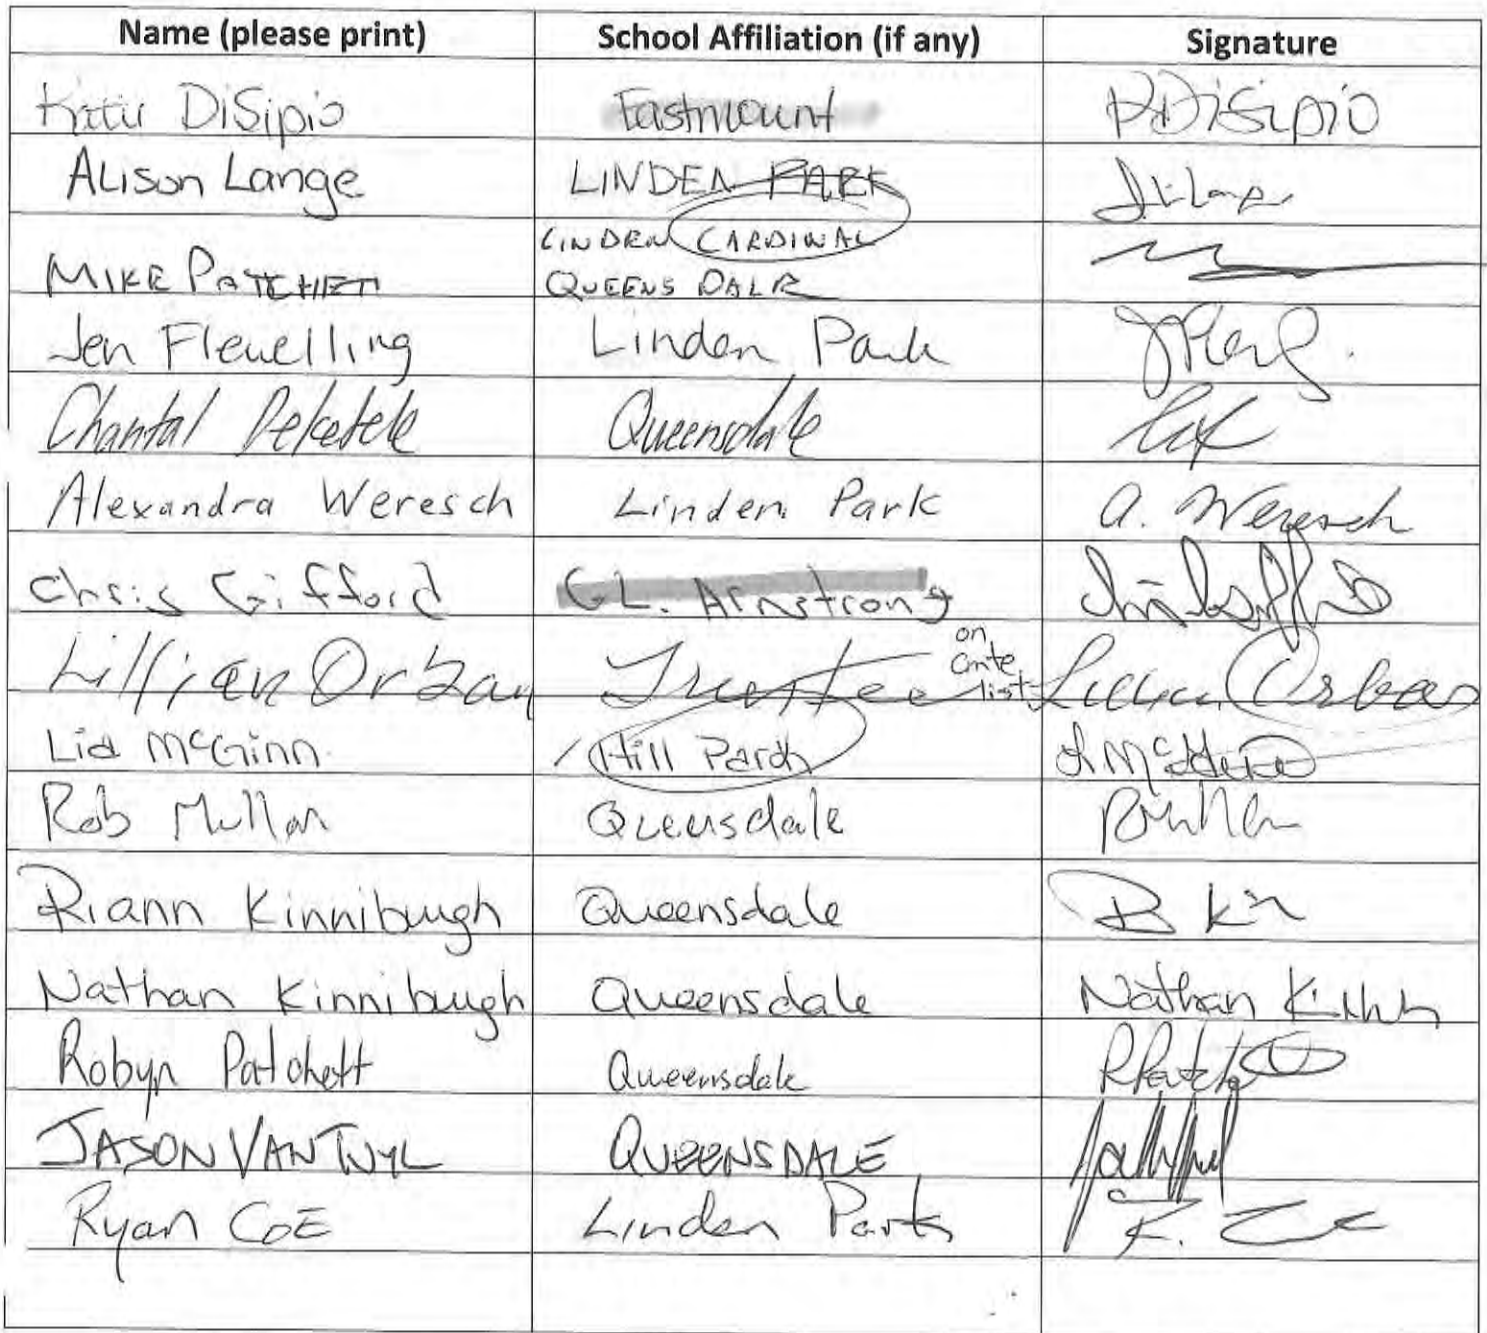 Name (please print) School Affiliation (if any) Signature
Katie DiSipio Eastmount KDiSipio
Alison Lange LINDEN PARK
LINDEN CARDINAL
MIKE PATCHETT QUEENS DALE
Jen Flewelling Linden Park
Chantal Deketele Queensdale
Alexandra Weresch Linden Park A. Weresch
Chris Gifford G.L. Armstrong
on
Lillian Orban Trustee cmte Lillian Orban
list
Lia McGinn Hill Park L McGinn
Rob Mullan Queensdale
Riann Kinniburgh Queensdale R Kin
Nathan Kinniburgh Queensdale Nathan
Robyn Patchett Queensdale
JASON VAN TUYL QUEENSDALE
Ryan COE Linden Park R. Coe